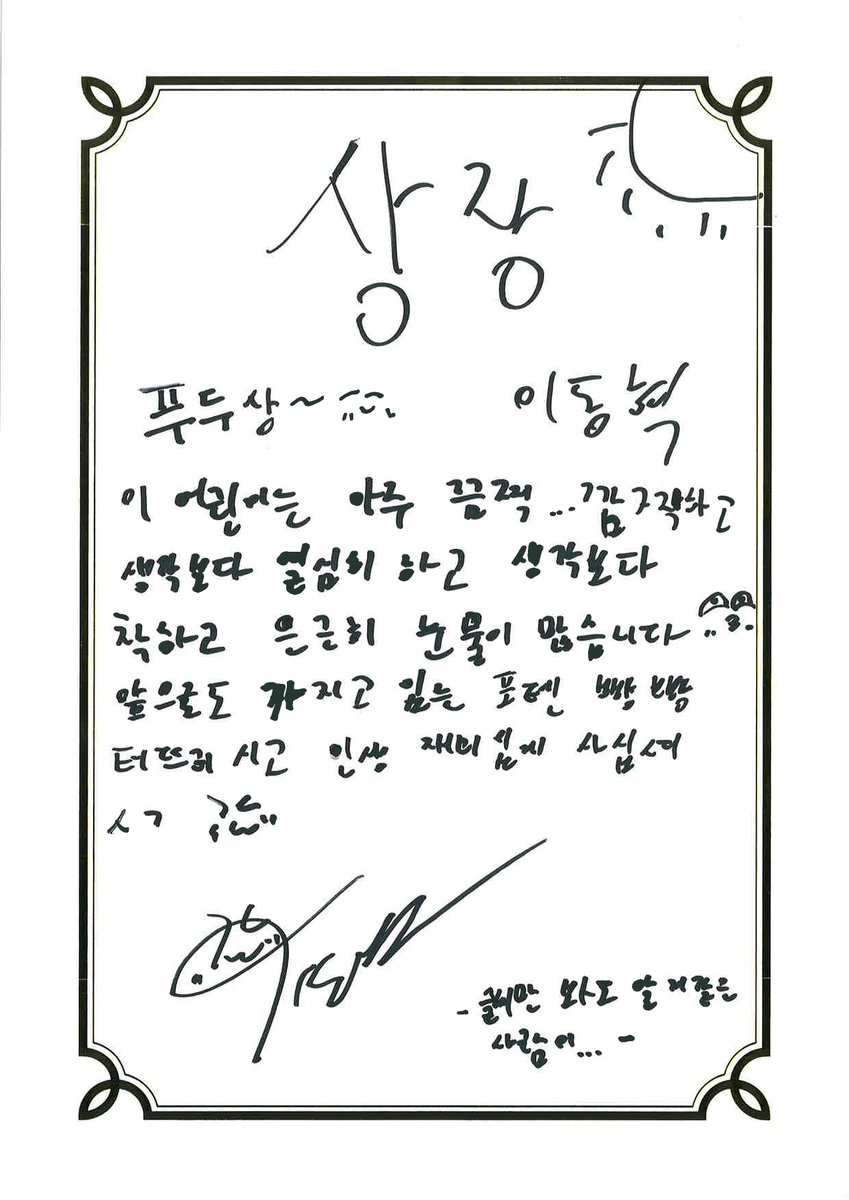 상장
푸두상~ 이동혁
이 어린이는 아주 끔찍...깜찍하고
생각보다 열심히 하고 생각보다
착하고 은근히 눈물이 많습니다
앞으로도 가지고 있는 포텐 빵빵
터뜨려 시고 인생 재미있게 사십셔
ㅅㄱ
- 글씨만 봐도 알 거 같은
사람이... -